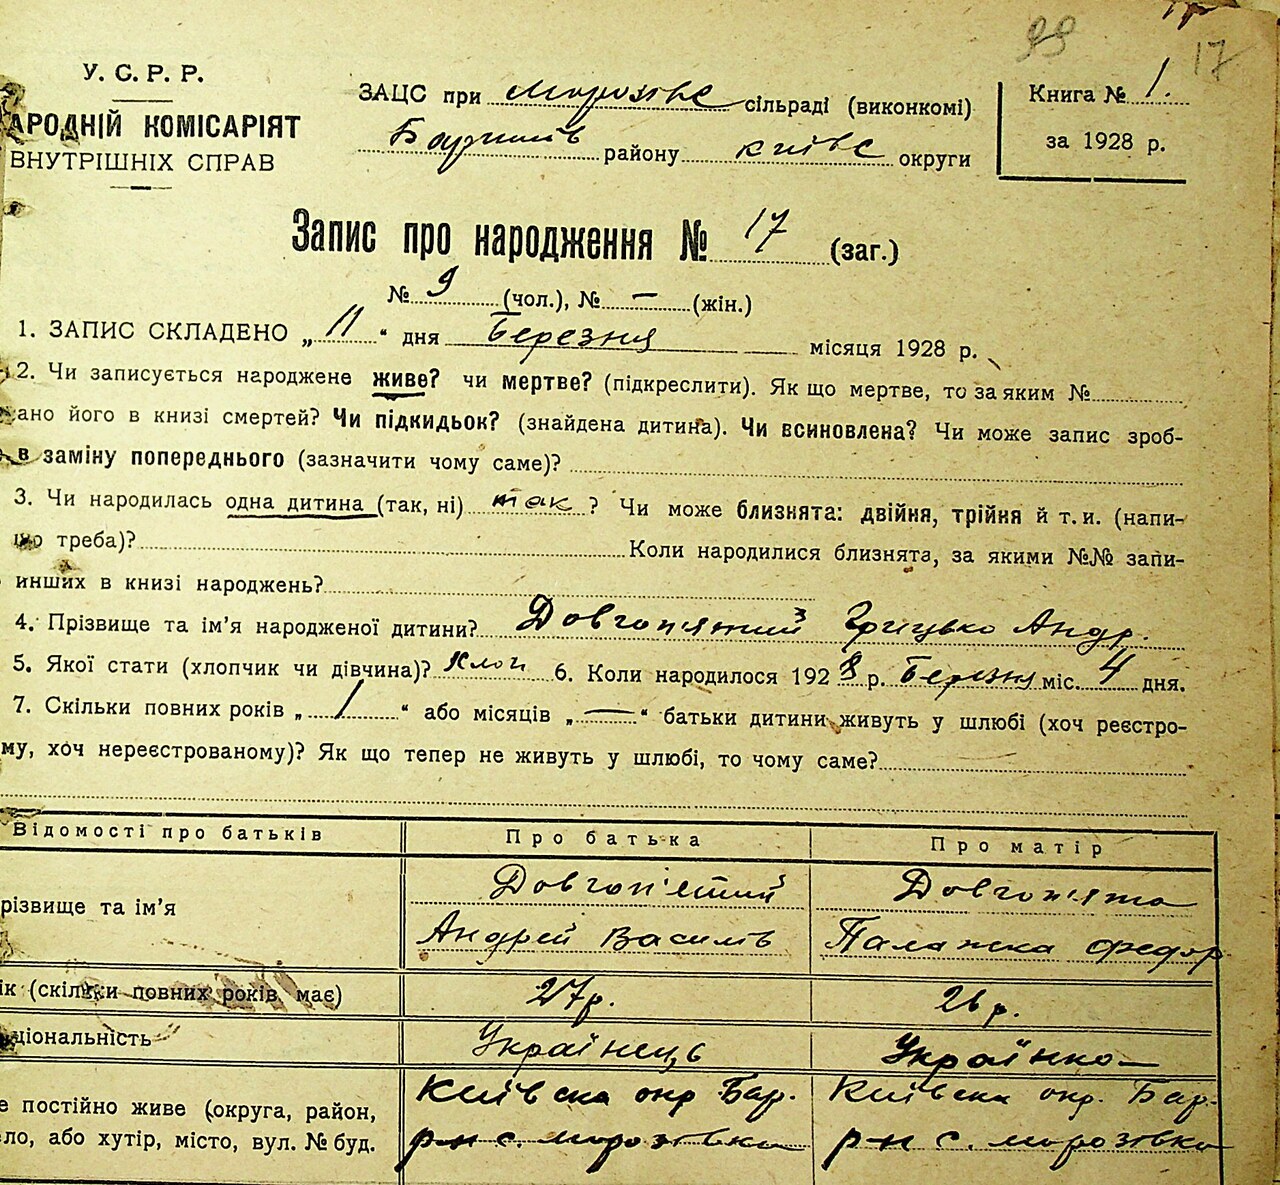 99
17
У. С. Р. Р.
АРОДНІЙ КОМІСАРІЯТ
ВНУТРІШНІХ СПРАВ
ЗАЦС при Морозівс сільраді (виконкомі)
Баришів району Київс округи
Книга № 1.
за 1928 р.
Запис про народження № 17 (заг.)
№ 9 (чол.), № — (жін.)
1. ЗАПИС СКЛАДЕНО „ 11 “ дня Березня місяця 1928 р.
2. Чи записується народжене живе? чи мертве? (підкреслити). Як що мертве, то за яким №
ано його в книзі смертей? Чи підкидьок? (знайдена дитина). Чи всиновлена? Чи може запис зроб-
в заміну попереднього (зазначити чому саме)?
3. Чи народилась одна дитина (так, ні) так ? Чи може близнята: двійня, трійня й т. и. (напи-
що треба)? Коли народилися близнята, за якими №№ запи-
инших в книзі народжень?
4. Прізвище та ім’я народженої дитини? Довгоп'ятий Грицько Андр.
5. Якої стати (хлопчик чи дівчина)? Хлоп 6. Коли народилося 1928 р. Березня міс. 4 дня.
7. Скільки повних років „ 1 “ або місяців „ — “ батьки дитини живуть у шлюбі (хоч реєстро-
му, хоч нереєстрованому)? Як що тепер не живуть у шлюбі, то чому саме?
Відомості про батьків Про батька Про матір
різвище та ім’я Довгоп'ятий Довгоп'ята
Андрей Василів Палажка Федор
ік (скільки повних років має) 27р. 26 р.
ціональність Українець Українка
е постійно живе (округа, район, Київска окр Бар. Київска окр. Бар.
ло, або хутір, місто, вул. № буд. р-н с. Морозівка р-н с. Морозівка